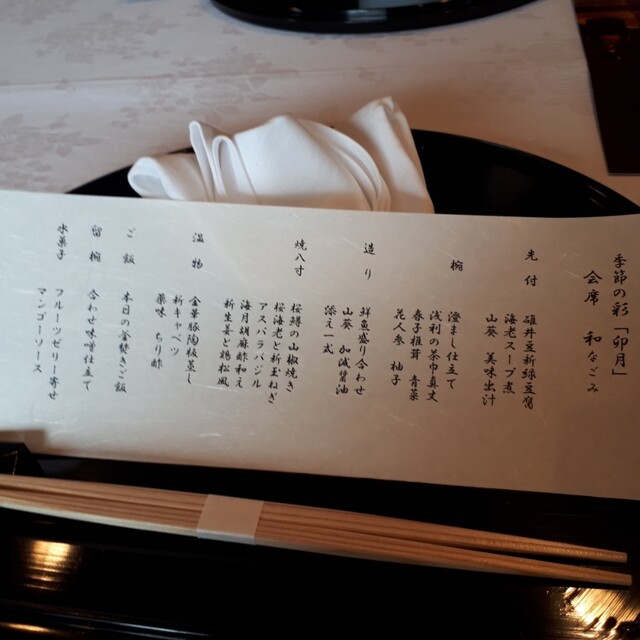 季節の彩「卯月」
会席 和なごみ
先付
碓井豆新緑豆腐
海老スープ煮
山葵 美味出汁
椀
澄まし仕立て
浅利の茶巾真丈
春子椎茸 青菜
花人参 柚子
造り
鮮魚盛り合わせ
山葵 加減醤油
添え一式
焼八寸
桜鱒の山椒焼き
桜海老と新玉ねぎ
アスパラバジル
海月胡麻酢和え
新生姜と鶏松風
温物
金華豚陶板蒸し
新キャベツ
薬味 ちり酢
ご飯
本日の釜焚きご飯
留椀
合わせ味噌仕立て
水菓子
フルーツゼリー寄せ
マンゴーソース